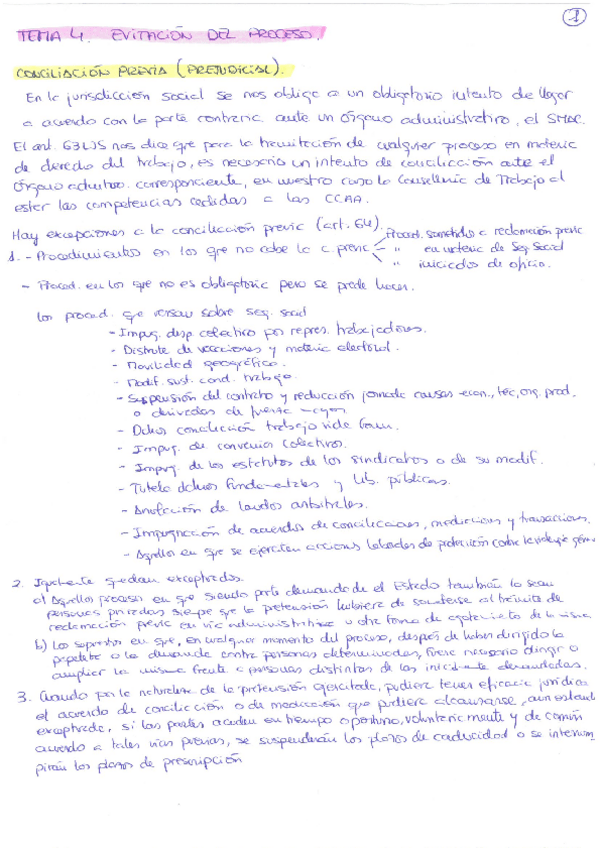 1
TEMA 4. EVITACIÓN DEL PROCESO.
CONCILIACIÓN PREVIA (PREJUDICIAL).
En la jurisdicción social se nos obliga a un obligatorio intento de llegar
a acuerdo con la parte contraria ante un órgano administrativo, el SMAC.
El art. 63 LJS nos dice que para la tramitación de cualquier proceso en materia
de derecho del trabajo, es necesario un intento de conciliación ante el
órgano admtvo. correspondiente, en nuestro caso la Consellería de Trabajo al
estar las competencias cedidas a las CCAA.
Hay excepciones a la conciliación previa (art. 64).
1. - Procedimientos en los que no cabe la c. previa
Proced. sometidos a reclamación previa
" en materia de Seg. Social
" iniciados de oficio.
- Proced. en los que no es obligatoria pero se puede hacer.
Los proced. que versan sobre seg. social
- Impug. desp. colectivo por repres. trabajadores.
- Disfrute de vacaciones y materia electoral.
- Movilidad geográfica.
- Modif. sust. cond. trabajo.
- Suspensión del contrato y reducción jornada causas econ., tec, org. prod.
o derivadas de fuerza mayor.
- Dchos conciliación trabajo vida fam.
- Impug. de convenios colectivos.
- Impug. de los estatutos de los sindicatos o de su modif.
- Tutela dchos fundamentales y lib. públicas.
- Anulación de laudos arbitrales.
- Impugnación de acuerdos de conciliaciones, mediaciones y transacciones.
- Aquellos en que se ejerciten acciones laborales de protección contra la violencia
2. Igualmente quedan exceptuados.
a) Aquellos procesos en que siendo parte demandada el Estado también lo sean
personas privadas siempre que la pretensión hubiera de someterse al trámite de
reclamación previa en vía administrativa u otra forma de agotamiento de la misma
b) Los supuestos en que, en cualquier momento del proceso, después de haber dirigido la
papeleta o la demanda contra personas determinadas, fuese necesario dirigir o
ampliar la misma frente a personas distintas de las inicialmente demandadas.
3. Cuando por la naturaleza de la pretensión ejercitada, pudiera tener eficacia jurídica
el acuerdo de conciliación o de mediación que pudiera alcanzarse, aun estando
exceptuado, si las partes acuden en tiempo oportuno, voluntariamente y de común
acuerdo a tales vías previas, se suspenderán los plazos de caducidad o se interrum
pirán los plazos de prescripción